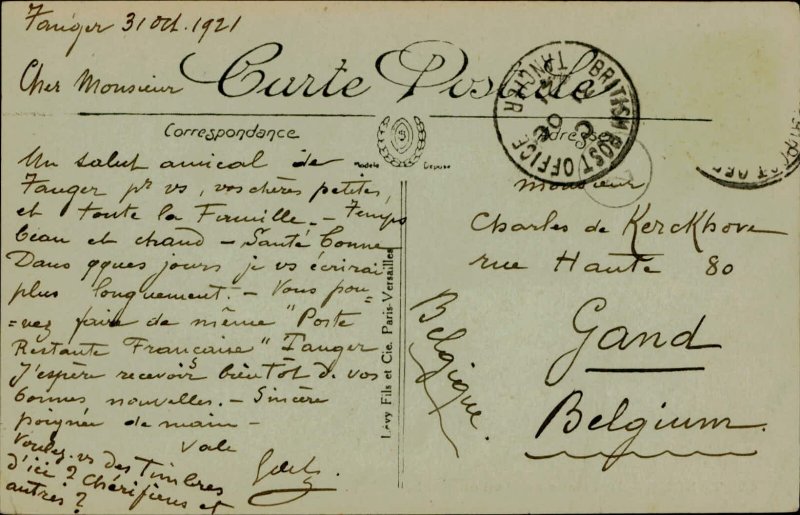 Tanger 31 Oct. 1921
Cher Monsieur
Carte Postale
Correspondance
Adresse
Modèle Déposé
Un salut amical de
Tanger pr vs, vos chères petites,
et toute la Famille. - Temps
beau et chaud - Santé bonne
Dans qques jours je vs écrirai
plus longuement. - Vous pou-
=vez faire de même "Poste
Restante Française" Tanger
J'espère recevoir bientôt d. vos
bonnes nouvelles. - Sincère
poignée de main -
Vale
Voulez-vs des Timbres
d'ici ? Chérifiens et
autres ?
Lévy Fils et Cie. Paris-Versailles
BRITISH POST OFFICE
TANGIER
Monsieur
Charles de Kerckhove
rue Haute 80
Gand
Belgium.
Belgique.